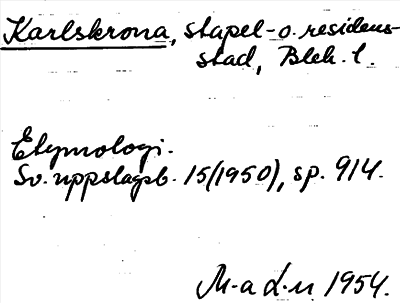 Karlskrona, stapel- o. residens-
stad, Blek. l.
Etymologi.
Sv. uppslagsb. 15(1950), sp. 914.
M-a L-n 1954.